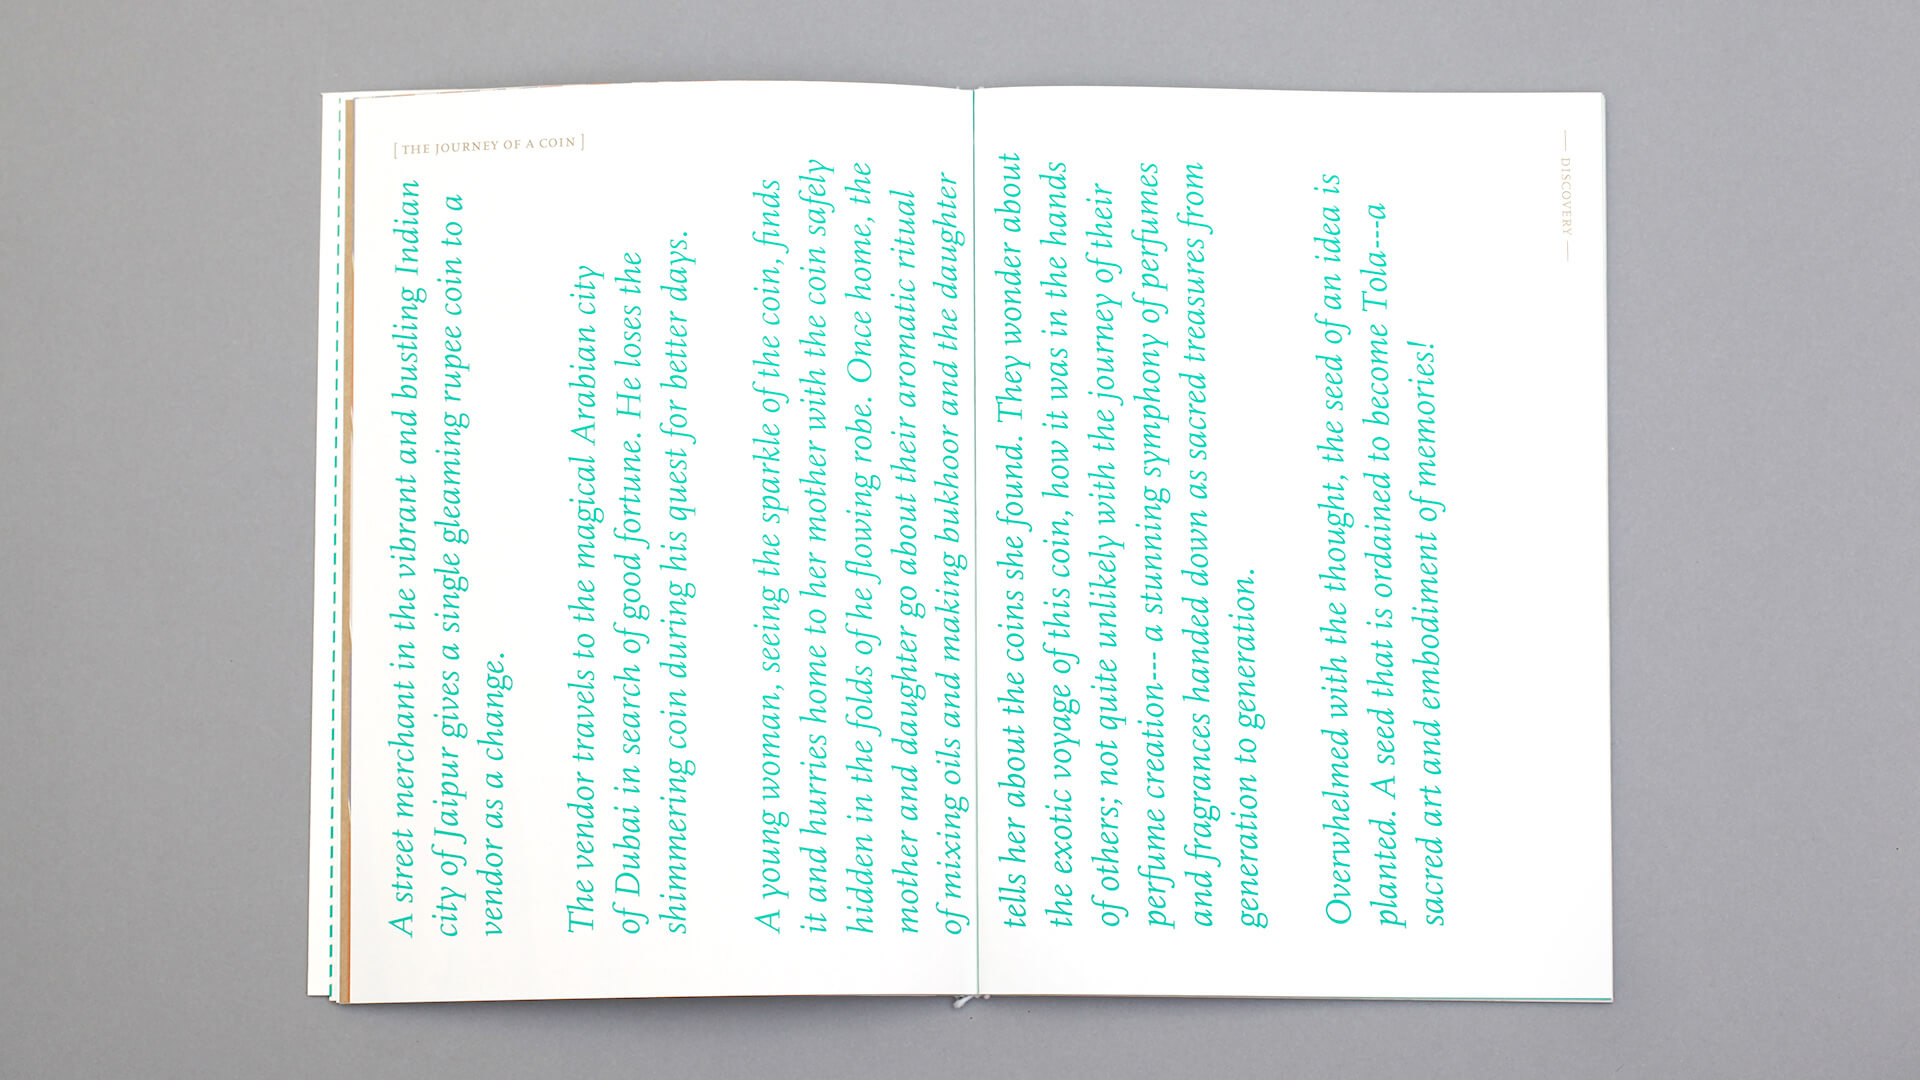 [ THE JOURNEY OF A COIN ]
A street merchant in the vibrant and bustling Indian
city of Jaipur gives a single gleaming rupee coin to a
vendor as a change.
The vendor travels to the magical Arabian city
of Dubai in search of good fortune. He loses the
shimmering coin during his quest for better days.
A young woman, seeing the sparkle of the coin, finds
it and hurries home to her mother with the coin safely
hidden in the folds of he flowing robe. Once home, the
mother and daughter go about their aromatic ritual
of mixing oils and making bukhoor and the daughter
tells her about the coins she found. They wonder about
the exotic voyage of this coin, how it was in the hands
of others; not quite unlikely with the journey of their
perfume creation--- a stunning symphony of perfumes
and fragrances handed down as sacred treasures from
generation to generation.
Overwhelmed with the thought, the seed of an idea is
planted. A seed that is ordained to become Tola---a
sacred art and embodiment of memories!
— DISCOVERY —